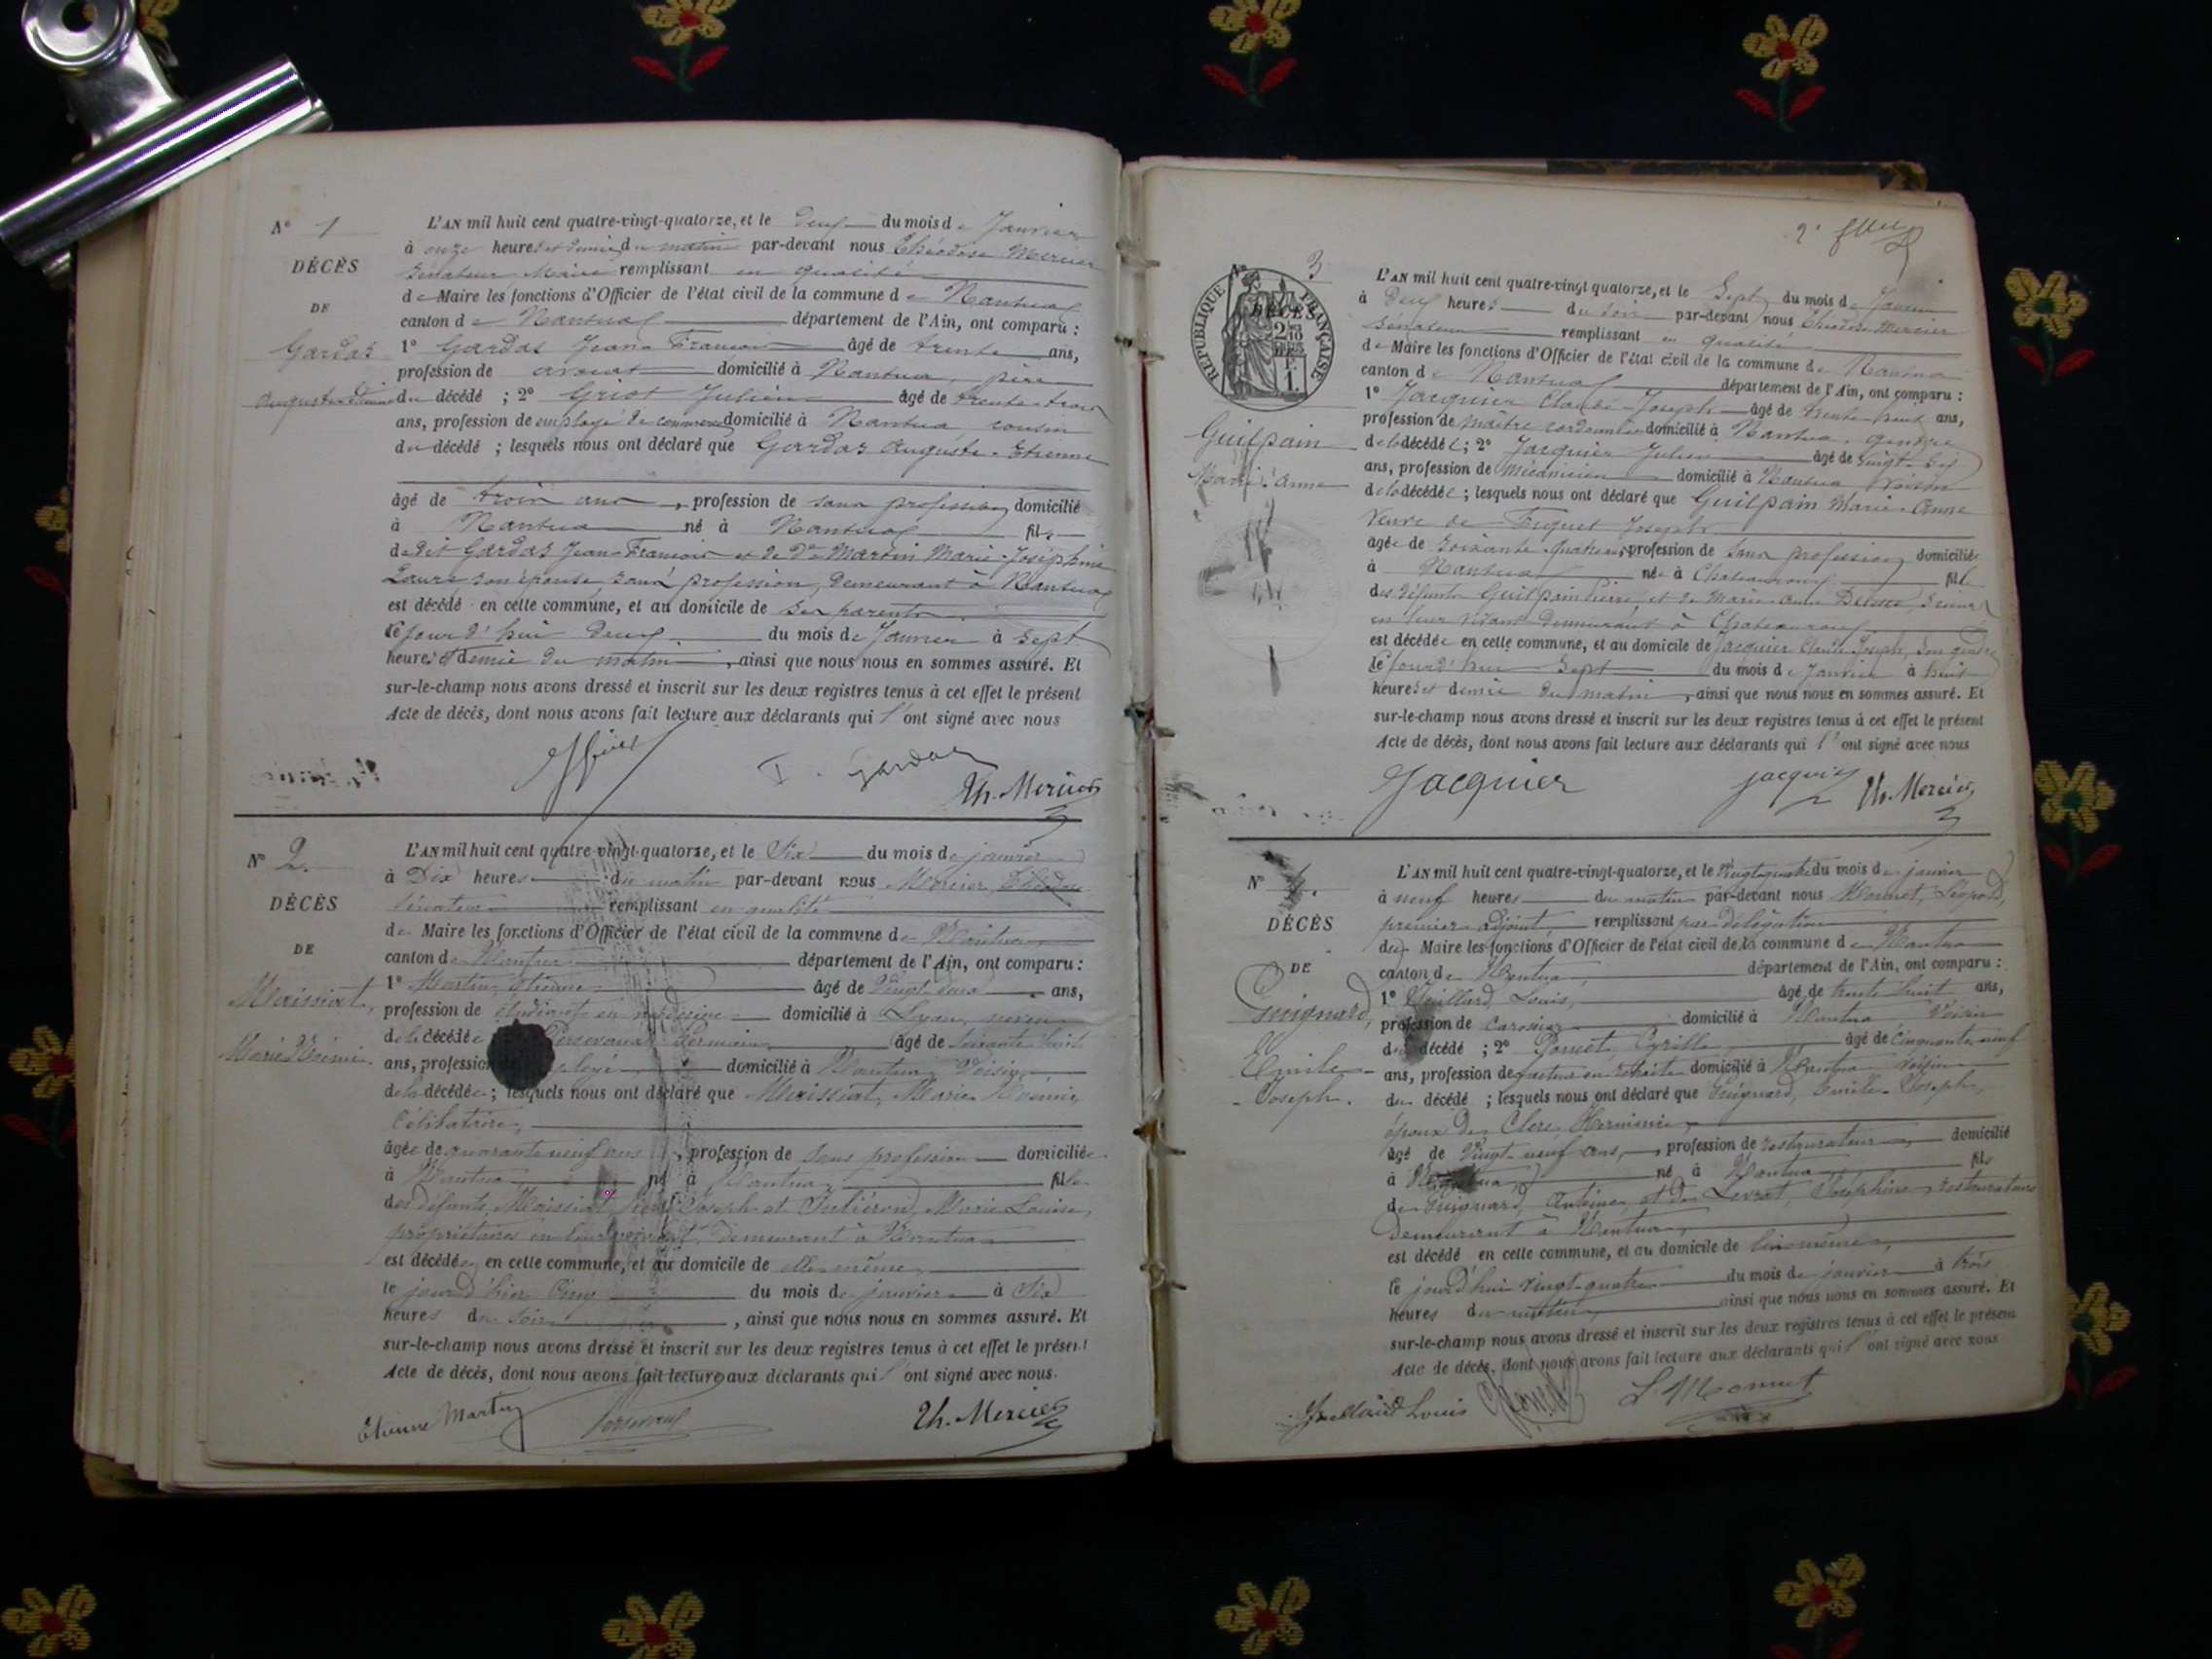 N° 1
DÉCÈS
DE
Gardas
Auguste Etienne
L'AN mil huit cent quatre-vingt-quatorze, et le deux du mois de Janvier
à onze heures et demie du matin par-devant nous Théodose Mercier
Sénateur Maire remplissant en qualité
de Maire les fonctions d'Officier de l'état civil de la commune de Nantua
canton de Nantua département de l'Ain, ont comparu :
1° Gardas Jean François âgé de trente ans,
profession de avocat domicilié à Nantua, père
du décédé ; 2° Griot Julien âgé de trente-trois
ans, profession de employé de commerce domicilié à Nantua, cousin
du décédé ; lesquels nous ont déclaré que Gardas Auguste-Etienne
âgé de trois ans, profession de sans profession domicilié
à Nantua né à Nantua fils
de dit Gardas Jean-François et de De Martin Marie-Joséphine
Laure son épouse sans profession, demeurant à Nantua
est décédé en cette commune, et au domicile de ses parents
le jourd'hui deux du mois de Janvier à sept
heures et demie du matin, ainsi que nous nous en sommes assuré. Et
sur-le-champ nous avons dressé et inscrit sur les deux registres tenus à cet effet le présent
Acte de décès, dont nous avons fait lecture aux déclarants qui l'ont signé avec nous
Gardas
Th. Mercier
N° 2.
DÉCÈS
DE
Maissiat,
Marie Noémi
L'AN mil huit cent quatre-vingt-quatorze, et le Six du mois de janvier
à Dix heures du matin par-devant nous Mercier, Théodose
Sénateur remplissant en qualité
de Maire les fonctions d'Officier de l'état civil de la commune de Nantua
canton de Nantua département de l'Ain, ont comparu :
1° Martin, Etienne âgé de Vingt-deux ans,
profession de étudiant en médecine domicilié à Lyon, neveu
de la décédée Germain âgé de soixante huit
ans, profession de domicilié à Nantua, Voisin
de la décédée ; lesquels nous ont déclaré que Maissiat, Marie Noémie,
Célibataire,
âgée de quarante neuf ans, profession de sans profession domiciliée
à Nantua né à Nantua, fille
des défunts Maissiat, Joseph et Marie Louise,
propriétaires en leur vivant, demeurant à Nantua
est décédée en cette commune, et au domicile de elle-même,
le jour d'hier Cinq du mois de janvier à Six
heures du soir, ainsi que nous nous en sommes assuré. Et
sur-le-champ nous avons dressé et inscrit sur les deux registres tenus à cet effet le présent
Acte de décès, dont nous avons fait lecture aux déclarants qui l'ont signé avec nous.
Etienne Martin
Th. Mercier
2e
N° 3
RÉPUBLIQUE FRANÇAISE
DÉCÈS
Guilpain
Marie-Anne
L'AN mil huit cent quatre-vingt quatorze, et le Sept du mois de Janvier
à Deux heures du soir par-devant nous Théodose Mercier
Sénateur remplissant en qualité
de Maire les fonctions d'Officier de l'état civil de la commune de Nantua
canton de Nantua département de l'Ain, ont comparu :
1° Jacquier Claude-Joseph âgé de trente-huit ans,
profession de maître cordonnier domicilié à Nantua, gendre
de la décédée ; 2° Jacquier Julien âgé de vingt-six
ans, profession de mécanicien domicilié à Nantua voisin
de la décédée ; lesquels nous ont déclaré que Guilpain Marie-Anne
Veuve de Joseph
âgée de soixante-quatre ans, profession de sans profession domiciliée
à Nantua née à Chateauroux fille
des défunts Guilpain Pierre, et de Marie-Anne
en leur vivant demeurant à Chateauroux
est décédée en cette commune, et au domicile de Jacquier Claude-Joseph, son gendre
le jourd'hui Sept du mois de Janvier à huit
heures et demie du matin, ainsi que nous nous en sommes assuré. Et
sur-le-champ nous avons dressé et inscrit sur les deux registres tenus à cet effet le présent
Acte de décès, dont nous avons fait lecture aux déclarants qui l'ont signé avec nous
Jacquier
Jacquier
Th. Mercier
N° 4.
DÉCÈS
DE
Guignard,
Emile-
Joseph.
L'AN mil huit cent quatre-vingt-quatorze, et le Vingt quatre du mois de janvier
à neuf heures du matin par-devant nous Monnet, Léopold,
premier adjoint remplissant par délégation
du Maire les fonctions d'Officier de l'état civil de la commune de Nantua
canton de Nantua, département de l'Ain, ont comparu :
1° Vuillard, Louis, âgé de trente huit ans,
profession de carossier domicilié à Nantua Voisin
du décédé ; 2° Poncet Cyrille âgé de Cinquante neuf
ans, profession de facteur en retraite domicilié à Nantua Voisin
du décédé ; lesquels nous ont déclaré que Guignard, Emile-Joseph,
époux de Clerc, Herminie,
âgé de Vingt-neuf ans, profession de restaurateur domicilié
à Nantua, né à Nantua fils
de Guignard, Antoine, et de Levrat, Joséphine, restaurateurs
demeurant à Nantua,
est décédé en cette commune, et au domicile de lui-même,
le jourd'hui vingt-quatre du mois de janvier à trois
heures du matin, ainsi que nous nous en sommes assuré. Et
sur-le-champ nous avons dressé et inscrit sur les deux registres tenus à cet effet le présent
Acte de décès, dont nous avons fait lecture aux déclarants qui l'ont signé avec nous
Vuillard Louis
Poncet
L Monnet